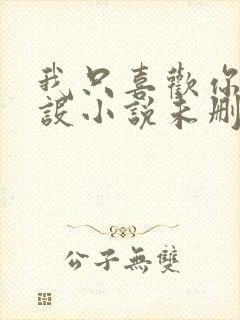 我只喜歡你
設小說未刪
公子無雙